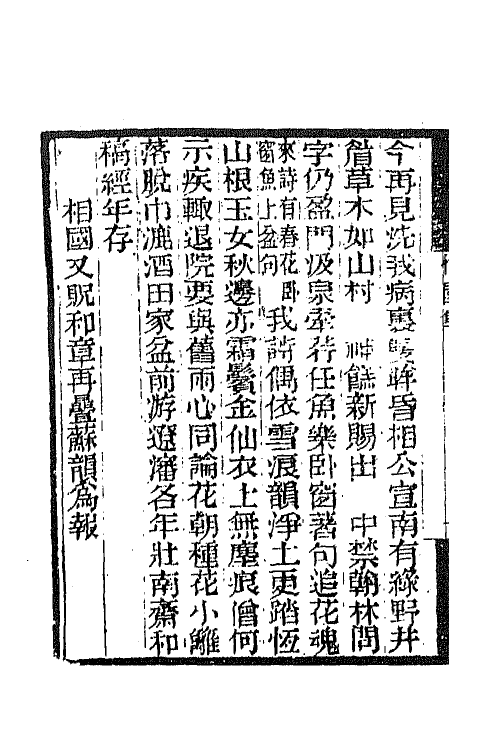 今再見洗我病裏雙眸昏相公宣南有綠野井
眉草木如山村　神餻新賜出　中禁翰林問
字仍盈門汲泉牽荇任魚樂卧窗著句追花魂
來詩有春花卧窗魚上盆句我詩偶依雪浪韻淨土更踏恆
山根玉女秋邊亦霜鬢金仙衣上無塵痕僧何
示疾輒退院要與舊雨心同論花朝種花小雛
落脫巾漉酒田家盆前游遼瀋各年壯南齋和
稿經年存
相國又貺和章再疊蘇韻為報